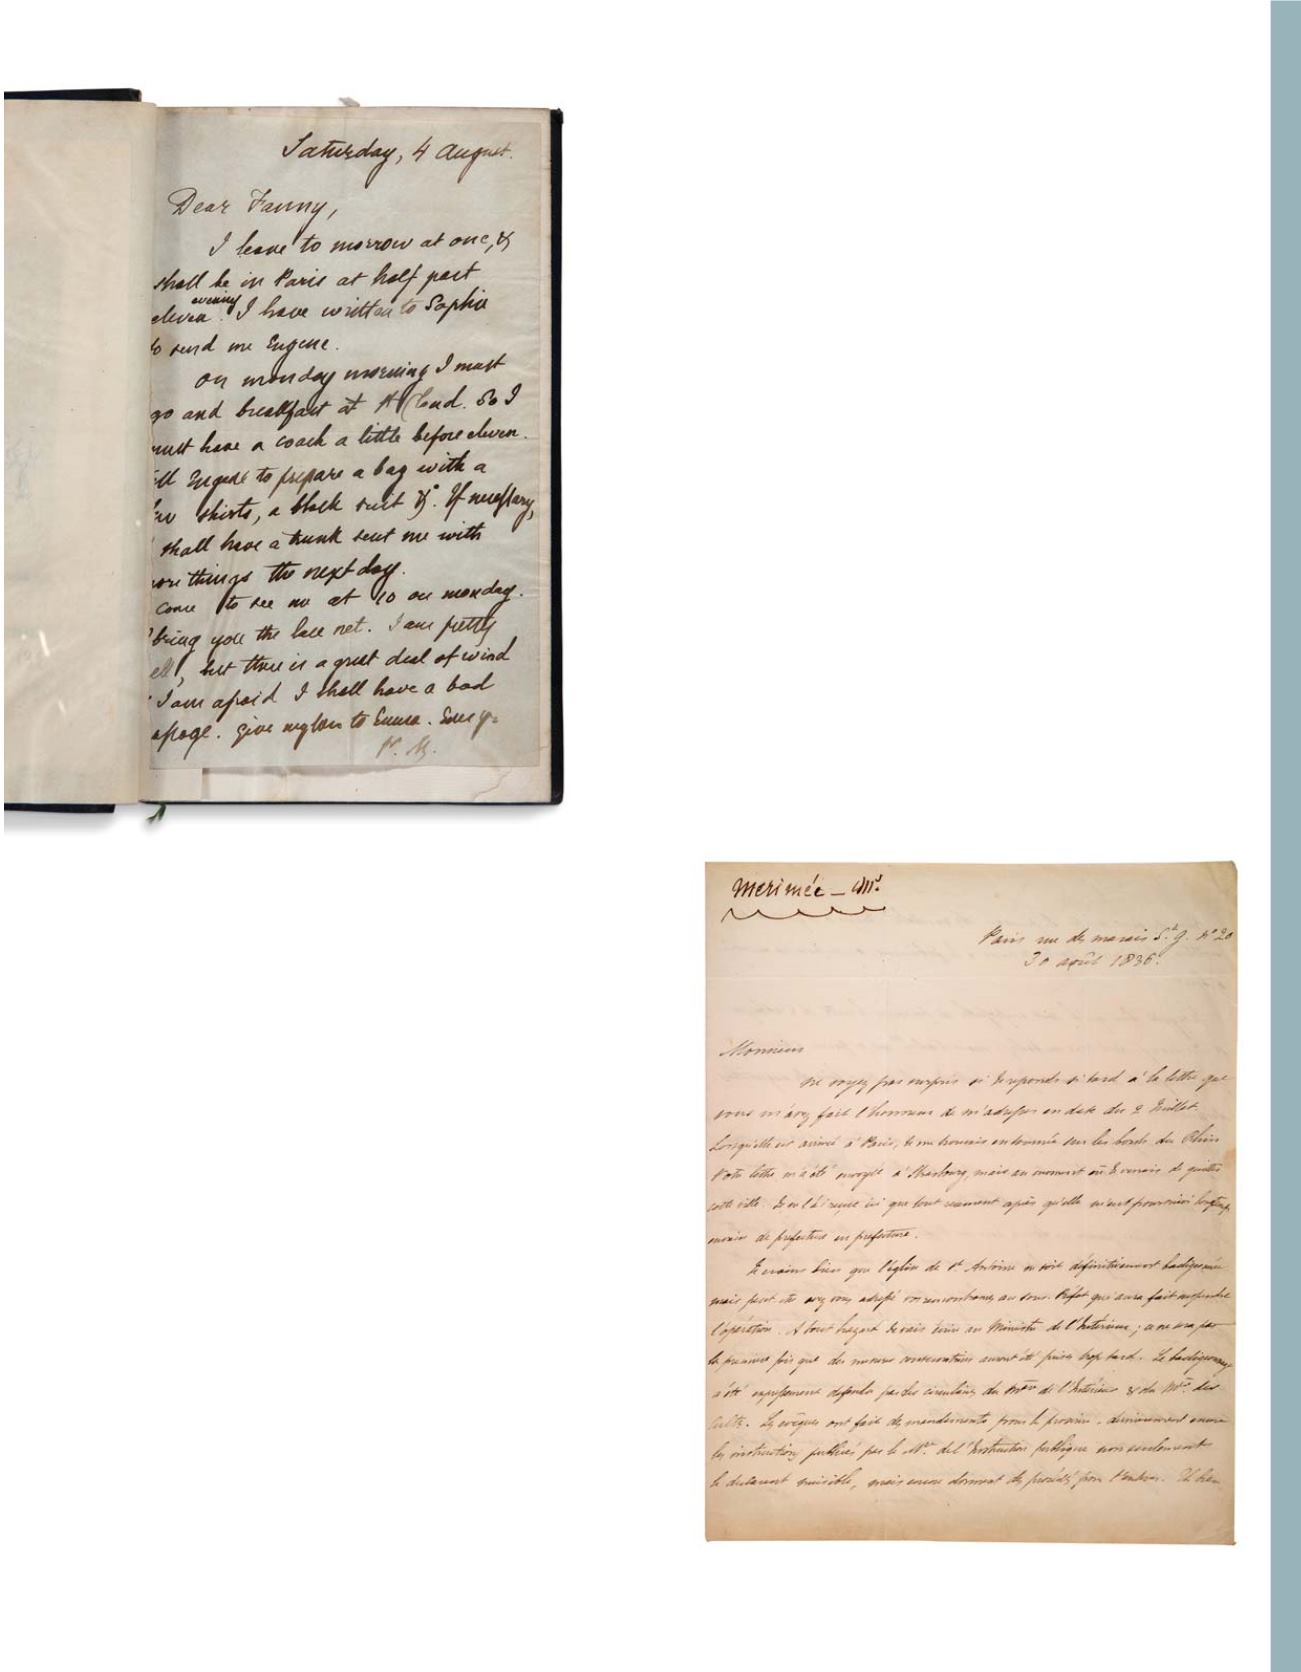 Saturday, 4 August.
Dear Fanny,
I leave to morrow at one, &
shall be in Paris at half past
eleven evening. I have written to Sophie
to send me Eugene.
On monday morning I must
go and breakfast at St Cloud. So I
must have a coach a little before eleven.
tell Eugene to prepare a bag with a
few shirts, a black suit &c. If necessary,
I shall have a trunk sent me with
more things the next day.
Come to see me at 10 on monday.
I bring you the lace net. I am pretty
well, but there is a great deal of wind
I am afraid I shall have a bad
give my love to Emma. Ever y.
Pr. M.
Merimée - 
Paris rue des marais St. G. No 20
30 août 1836.
Monsieur
ne soyez pas surpris si je reponds si tard à la lettre que
vous m'avez fait l'honneur de m'adresser en date du 2 Juillet.
Lorsqu'elle est arrivée à Paris, je me trouvais en tournée sur les bords du Rhin
Votre lettre m'a été envoyée à Strasbourg, mais au moment où je venais de quitter
cette ville. Je ne l'ai reçue ici que tout recemment après qu'elle m'eut poursuivi longtemps
de préfecture en préfecture.
Je crains bien que l'église de St Antoine ne soit définitivement badigeonnée
mais peut être avez vous adressé vos remontrances au sous-Préfet qui aura fait suspendre
l'opération. A tout hazard je vais écrire au Ministre de l'Intérieur; ce ne sera pas
la premiere fois que des mesures conservatrices auront été prises trop tard. Le badigeonnage
a été expressement defendu par des circulaires du Mtre de l'Intérieur & du Mtre des
Cultes. Les évêques ont fait des mandements pour le proscrire, dernierement encore
les instructions publiées par le Mtre de l'Instruction publique non seulement
le déclarent nuisible, mais encore donnent des procédés pour l'enlever. Eh bien